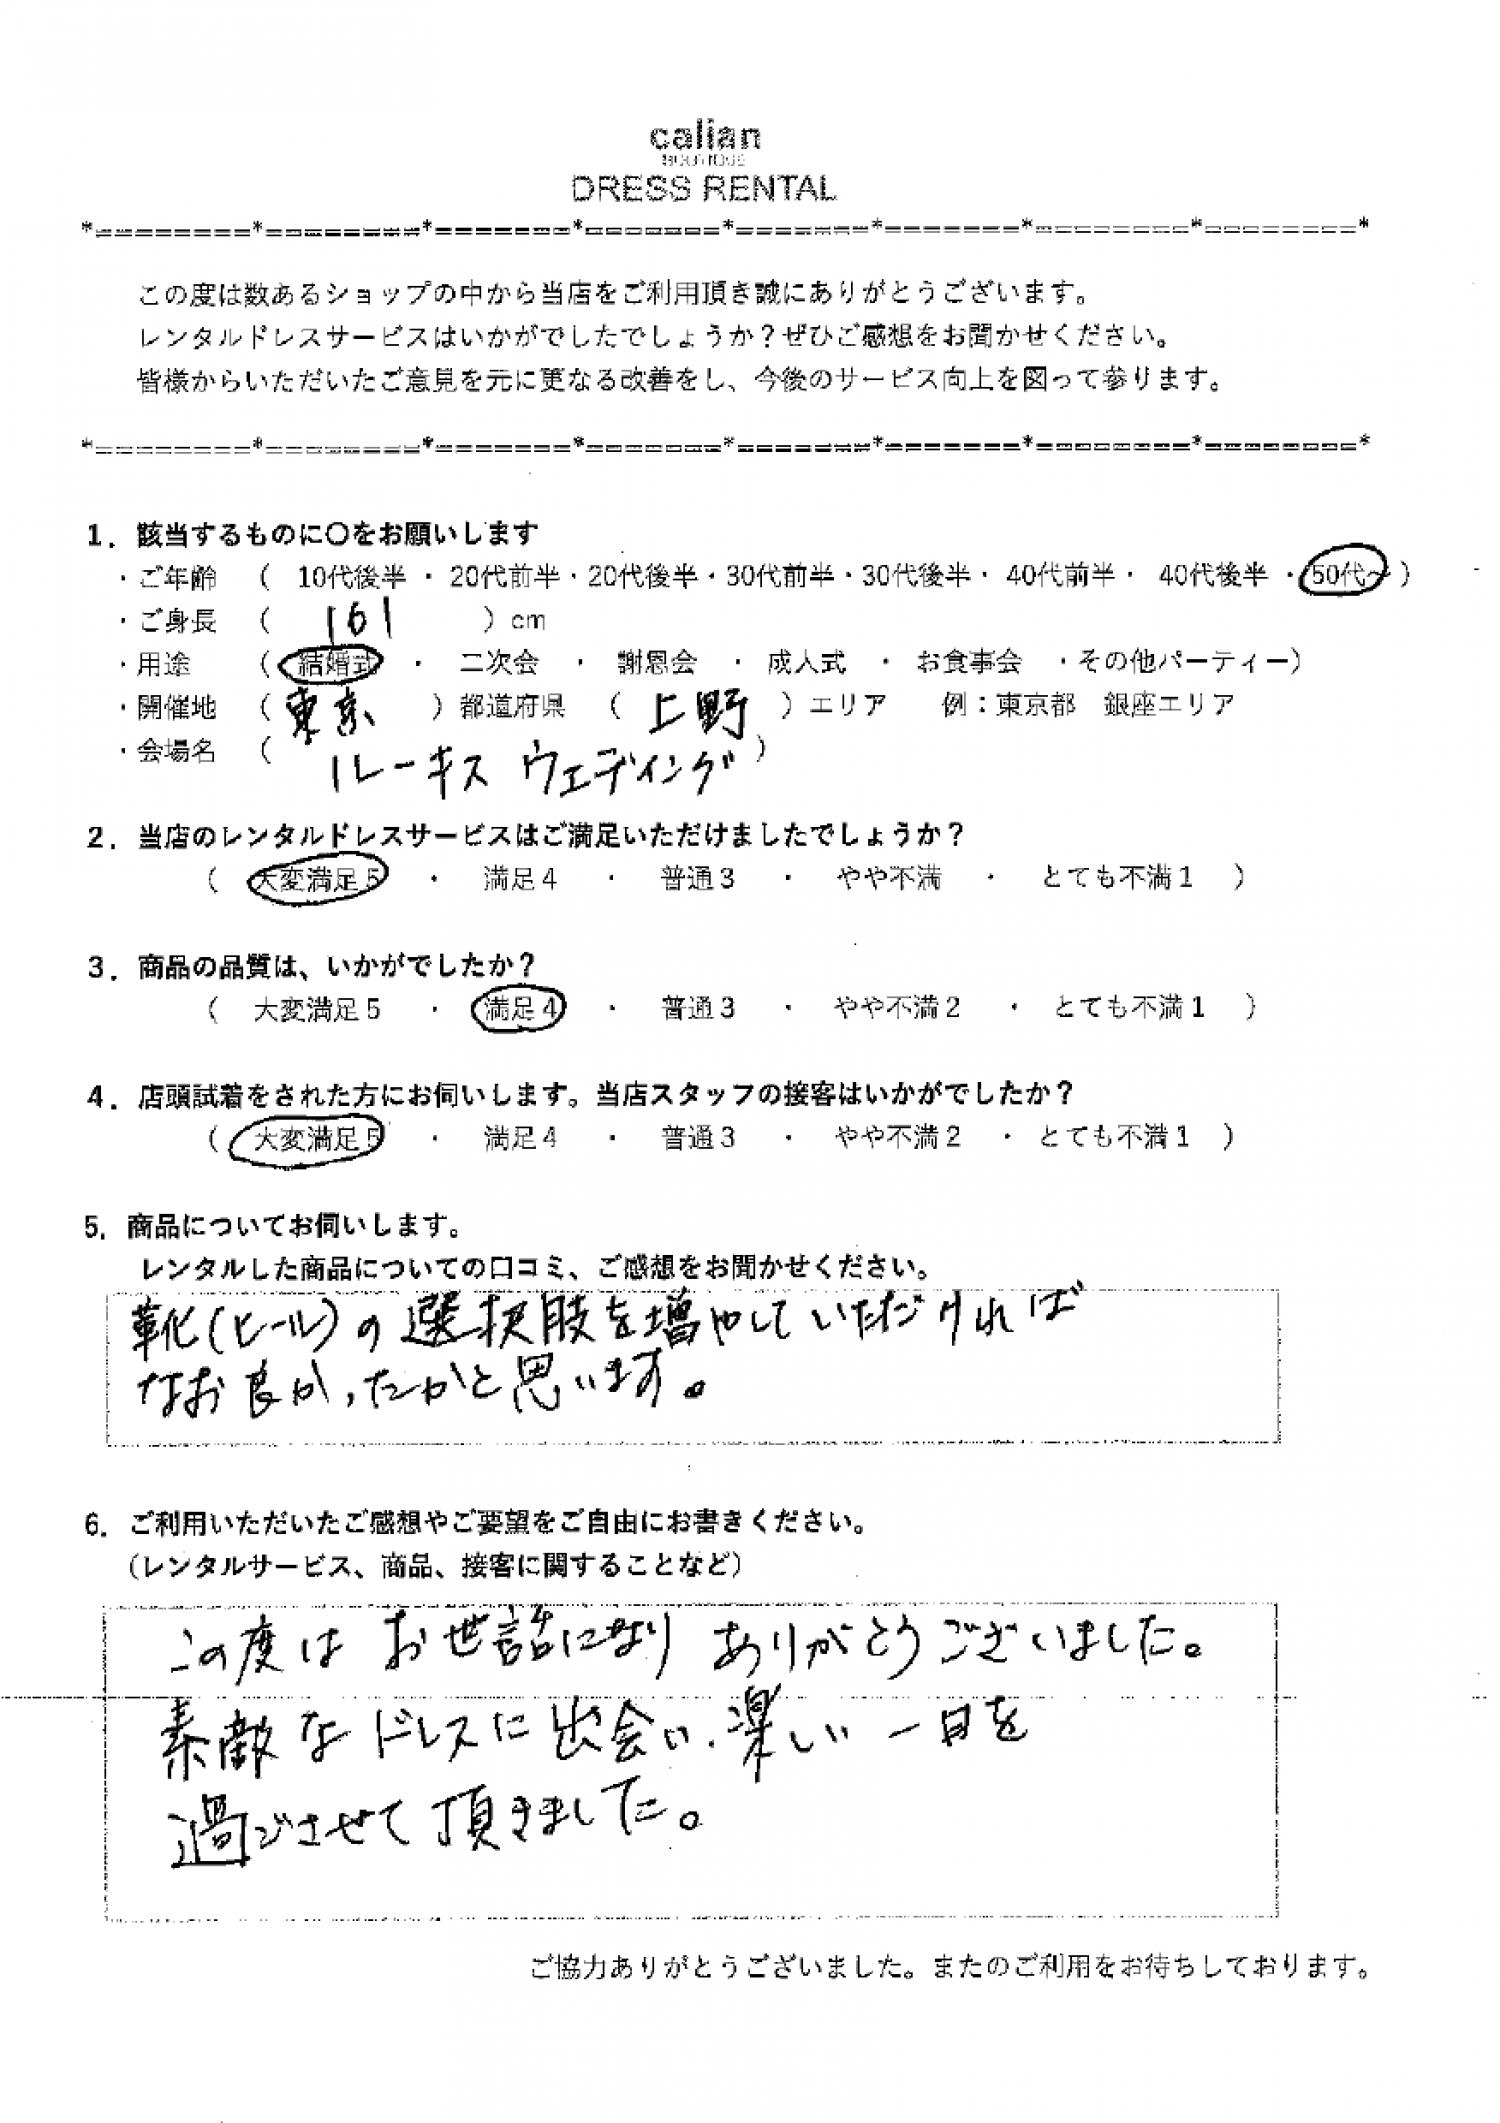 calian
BOUTIQUE
DRESS RENTAL
*========*========*=======*=======*=======*=======*========*========*
この度は数あるショップの中から当店をご利用頂き誠にありがとうございます。
レンタルドレスサービスはいかがでしたでしょうか？ぜひご感想をお聞かせください。
皆様からいただいたご意見を元に更なる改善をし、今後のサービス向上を図って参ります。
*========*========*=======*=======*=======*=======*========*========*
1．該当するものに〇をお願いします
・ご年齢 （ 10代後半 ・ 20代前半・20代後半・30代前半・30代後半・ 40代前半・ 40代後半 ・50代～）
・ご身長 （ 161 ）cm
・用途 （ 結婚式 ・ 二次会 ・ 謝恩会 ・ 成人式 ・ お食事会 ・その他パーティー）
・開催地 （ 東京 ）都道府県 （ 上野 ）エリア 例：東京都 銀座エリア
・会場名 （ ルーキス ウェディング ）
2．当店のレンタルドレスサービスはご満足いただけましたでしょうか？
（ 大変満足5 ・ 満足4 ・ 普通3 ・ やや不満 ・ とても不満1 ）
3．商品の品質は、いかがでしたか？
（ 大変満足5 ・ 満足4 ・ 普通3 ・ やや不満2 ・ とても不満1 ）
4．店頭試着をされた方にお伺いします。当店スタッフの接客はいかがでしたか？
（ 大変満足5 ・ 満足4 ・ 普通3 ・ やや不満2 ・ とても不満1 ）
5．商品についてお伺いします。
レンタルした商品についての口コミ、ご感想をお聞かせください。
靴(ヒール)の選択肢を増やしていただければ
なお良かったかと思います。
6．ご利用いただいたご感想やご要望をご自由にお書きください。
（レンタルサービス、商品、接客に関することなど）
この度は お世話になり ありがとうございました。
素敵なドレスに出会い、楽しい一日を
過ごさせて頂きました。
ご協力ありがとうございました。またのご利用をお待ちしております。